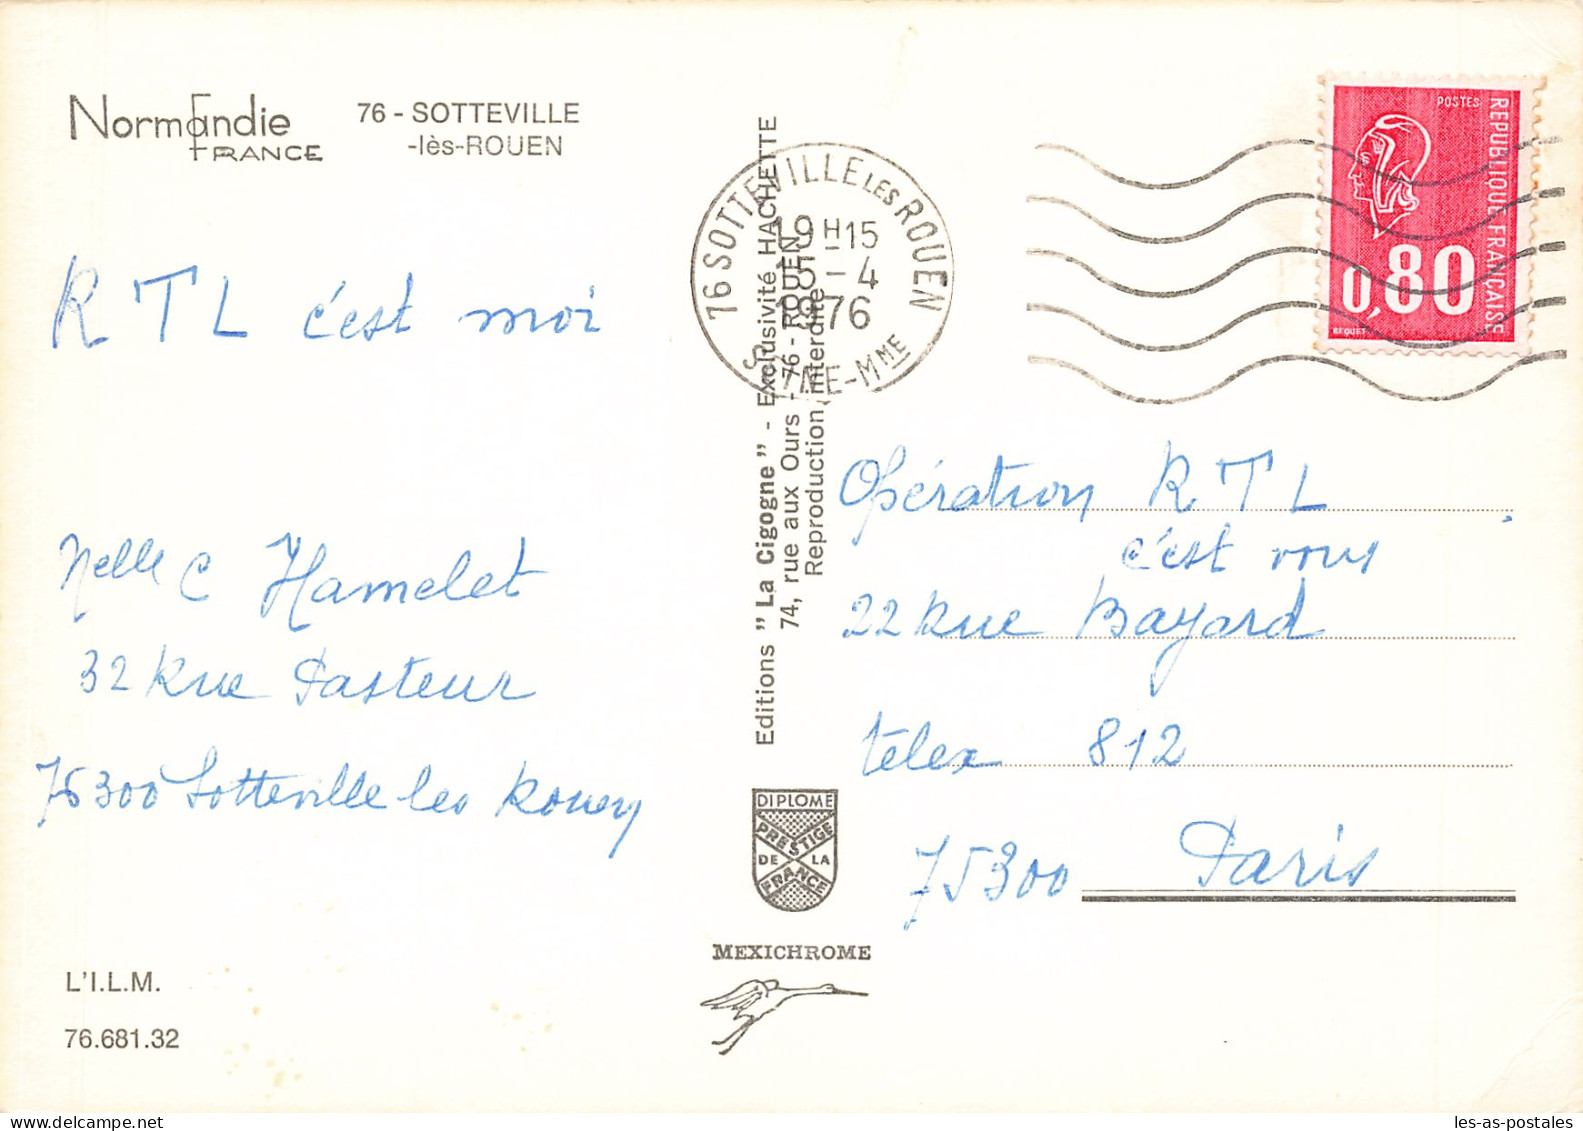 Normandie
FRANCE
76 - SOTTEVILLE
-lès-ROUEN
RTL c'est moi
Melle C Hamelet
32 Rue Pasteur
76300 Sotteville les Rouen
L'I.L.M.
76.681.32
Editions "La Cigogne" - Exclusivité HACHETTE
74, rue aux Ours - 76 - ROUEN
Reproduction interdite
DIPLOME
PRESTIGE
DE LA
FRANCE
MEXICHROME
76 SOTTEVILLE LES ROUEN
19H15
15-4
1976
SEINE-MME
POSTES
REPUBLIQUE FRANÇAISE
0,80
BEQUET
Opération RTL
c'est vous
22 Rue Bayard
télex 812
75300 Paris
les-as-postales